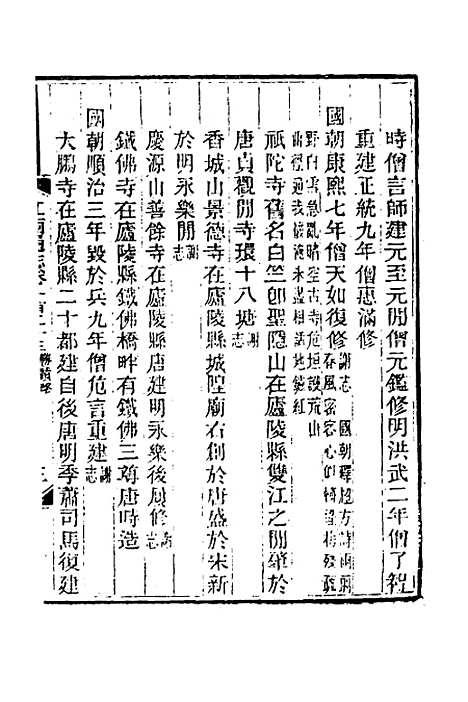 時僧言師建元至元間僧元鑑修明洪武二年僧了
重建正統九年僧惠滿修
國朝康熙七年僧天如復修謝志 國朝釋超方詩雨
春風密客心
野白雲急亂踏空古寺危垣設荒山
曲徑通
祇陀寺舊名白竺卽聖隱山在廬陵縣雙江之間肇於
唐貞觀間寺環十八塘謝志
香城山景德寺在廬陵縣城隍廟右創於唐盛於宋新
於明永樂間謝志
慶源山善餘寺在廬陵縣唐建明永樂後屢修謝志
鐵佛寺在廬陵縣鐵佛橋畔有鐵佛三尊唐時造
國朝順治三年毀於兵九年僧危言重建謝志
大鵬寺在廬陵縣二十都建自後唐明季蕭司馬復建
江西通志卷一百二十三 勝蹟略
三